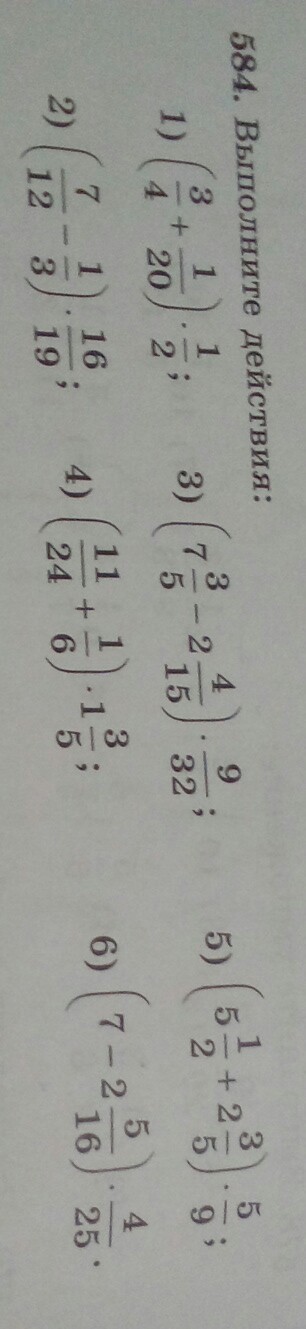 584. Выполните действия:
1) (3/4 + 1/20) · 1/2; 3) (7 3/5 − 2 4/15) · 9/32; 5) (5 1/2 + 2 3/5) · 5/9;
2) (7/12 − 1/3) · 16/19; 4) (11/24 + 1/6) · 1 3/5; 6) (7 − 2 5/16) · 4/25.